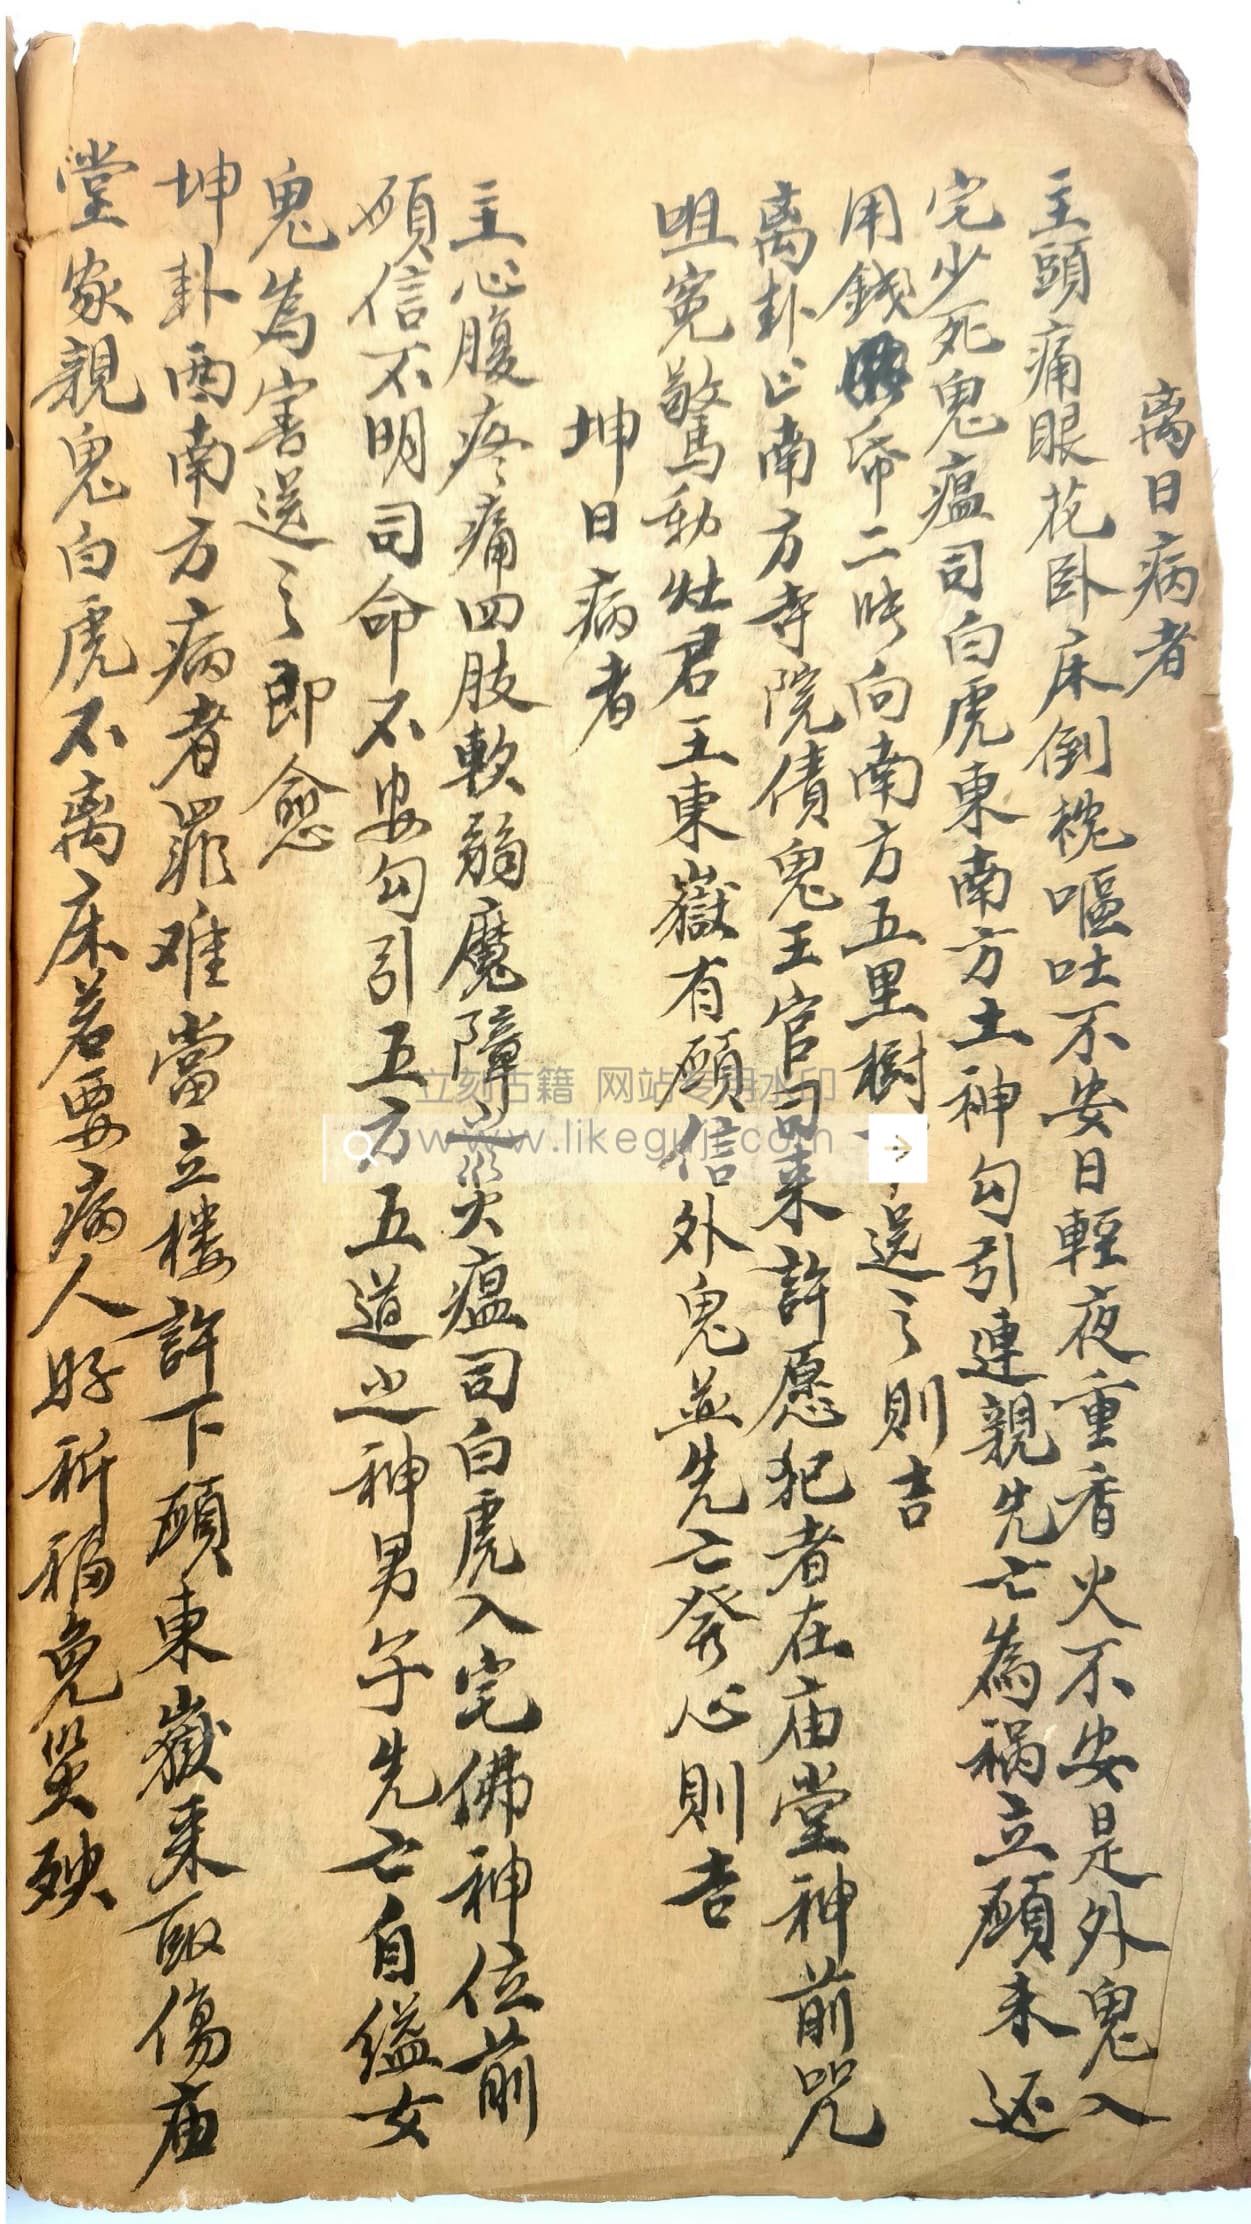 离日病者
主頭痛眼花卧床倒枕嘔吐不安日輕夜重香火不安是外鬼入
宅少死鬼瘟司白虎東南方土神勾引連親先亡為祸立願未还
用錢帋二时向南方五里樹下送之則吉
离卦正南方寺院債鬼王官司来許愿犯者在庙堂神前咒
咀冤驚動灶君王東嶽有願信外鬼並先亡発心則吉
坤日病者
主心腹疼痛四肢軟弱魔障災瘟司白虎入宅佛神位前
願信不明司命不安勾引五方五道土神男子先亡自縊女
鬼為害送之即愈
坤卦西南方病者罪难當立楼許下願東嶽来取傷庙
堂家親鬼白虎不离床若要病人好祈福免災殃
立刻古籍 网站专用水印
www.likeguji.com